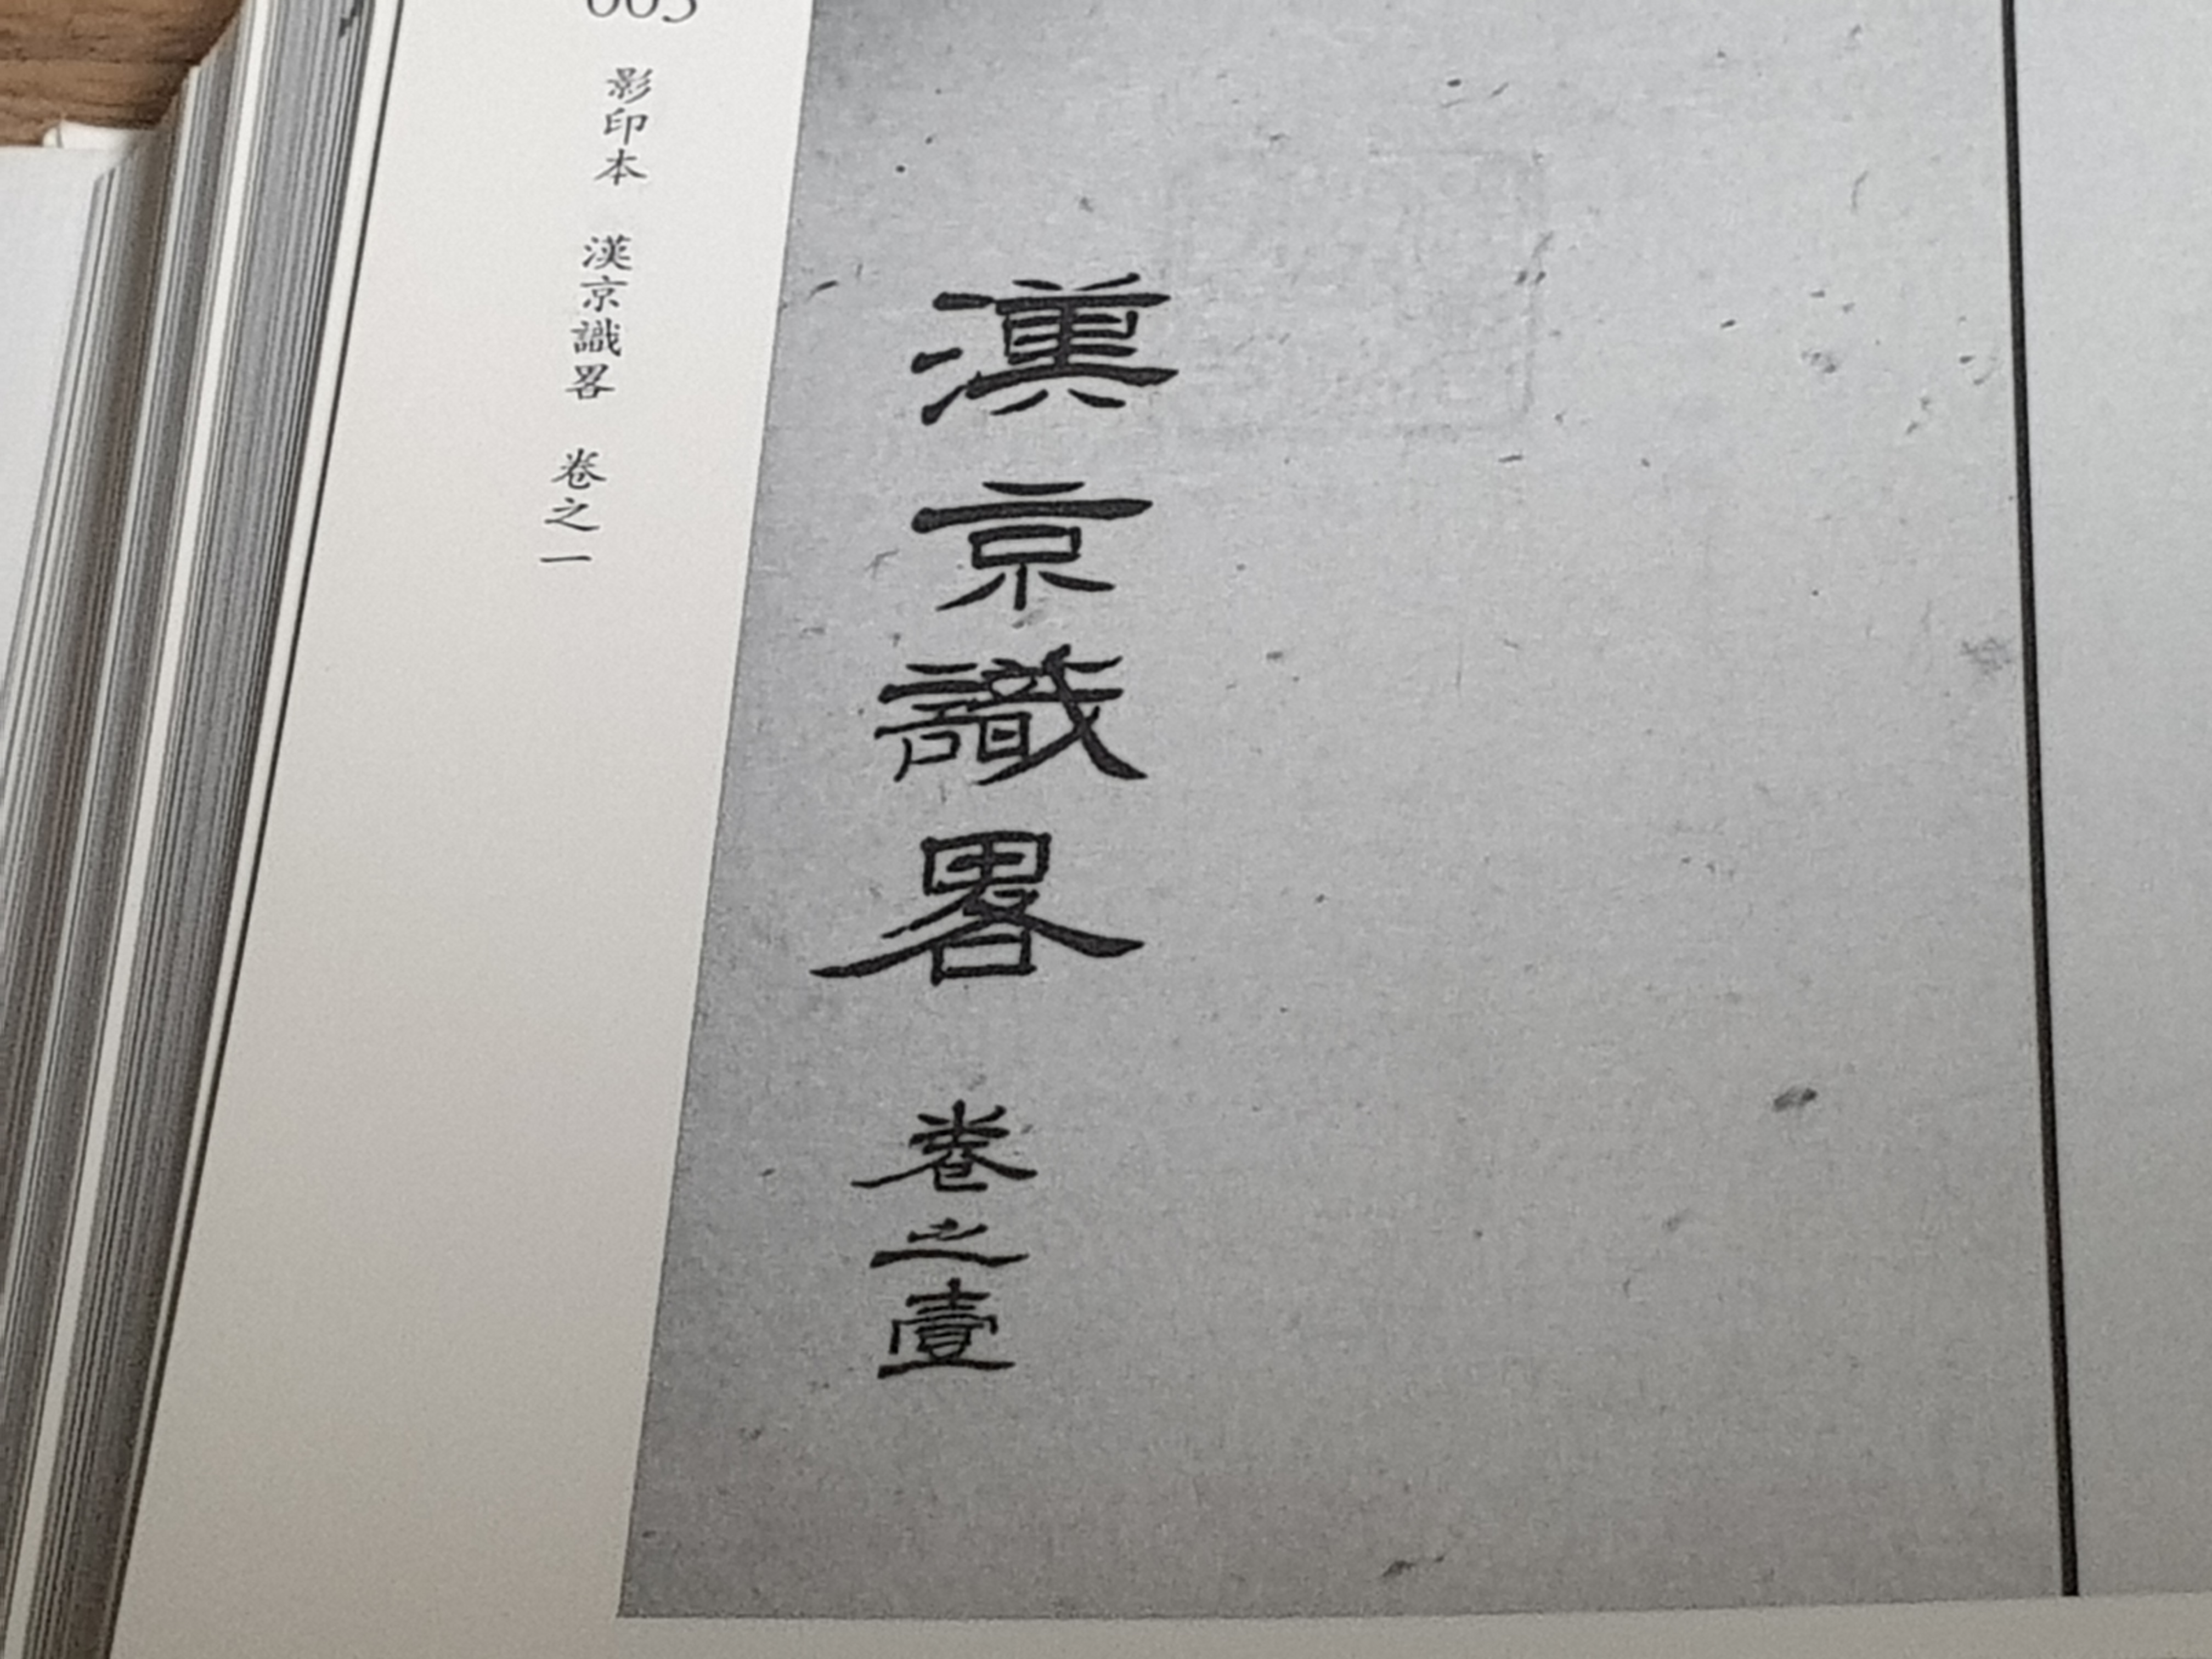 漢京識畧 卷之壹
影印本 漢京識畧 卷之一